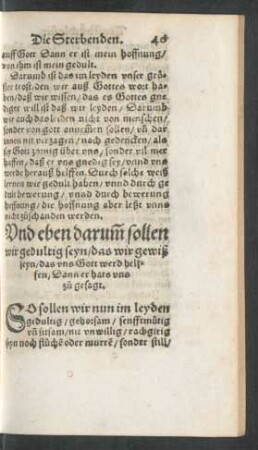 Die Sterbenden. 40
auff Gott Dann er ist mein hoffnung/
von ihm ist mein gedult.
Darumb ist das im leyden vnser grö-
ster trost/den wir auß Gottes wort ha-
ben/daß wir wissen/das es Gottes gne-
digst will ist daß wir leyden/ Darumb
wir auch das leiden nicht von menschen/
sonder von gott annemen sollen/ vñ dar
innen nit verzagen/ noch gedencken/ als
sey Gott zornig über vns/ sonder vil mer
hoffen/ daß er vns gnedig sey/vnnd vns
werde herauß helffen. Durch solche weiß
lernen wir gedult haben/ vnnd durch ge
dult bewerung/ vnnd durch bewerung
hoffnung/ die hoffnung aber leßt vnns
nicht zůschanden werden.
Vnd eben darum̃ sollen
wir gedultig seyn/das wir gewiß
seyn/das vns Gott werd helf-
fen/ Dann er hats vns
zů gesagt.
SO sollen wir nun im leyden
gedultig/ gehorsam/ senfftmütig
vñ sitsam/nit vnwillig/ rachgirig
seyn noch flůchẽ oder murrẽ/ sonder still/